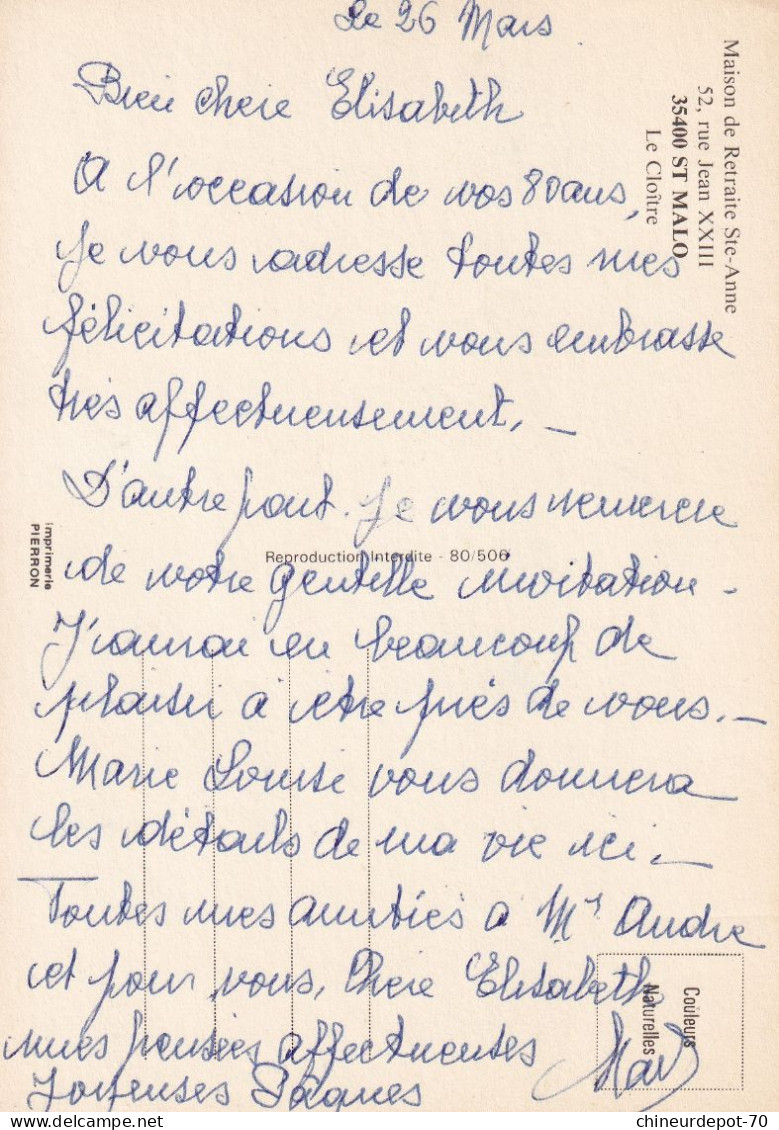 Le 26 Mars
Bien chere Elisabeth
A l'occasion de vos 80 ans,
je vous adresse toutes mes
félicitations et vous embrasse
très affectueusement. _
D'autre part. Je vous remercie
de votre gentille invitation -
J'aurai eu beaucoup de
plaisir à être près de vous. _
Marie Louise vous donnera
les détails de ma vie ici _
Toutes mes amitiés à Mr Andre
et pour vous, Chere Elisabeth
mes pensées affectueuses
Joyeuses Pâques
Maison de Retraite Ste-Anne
52, rue Jean XXIII
35400 ST MALO
Le Cloître
imprimerie
PIERRON
Reproduction Interdite - 80/506
Couleurs
Naturelles
chineurdepot-70